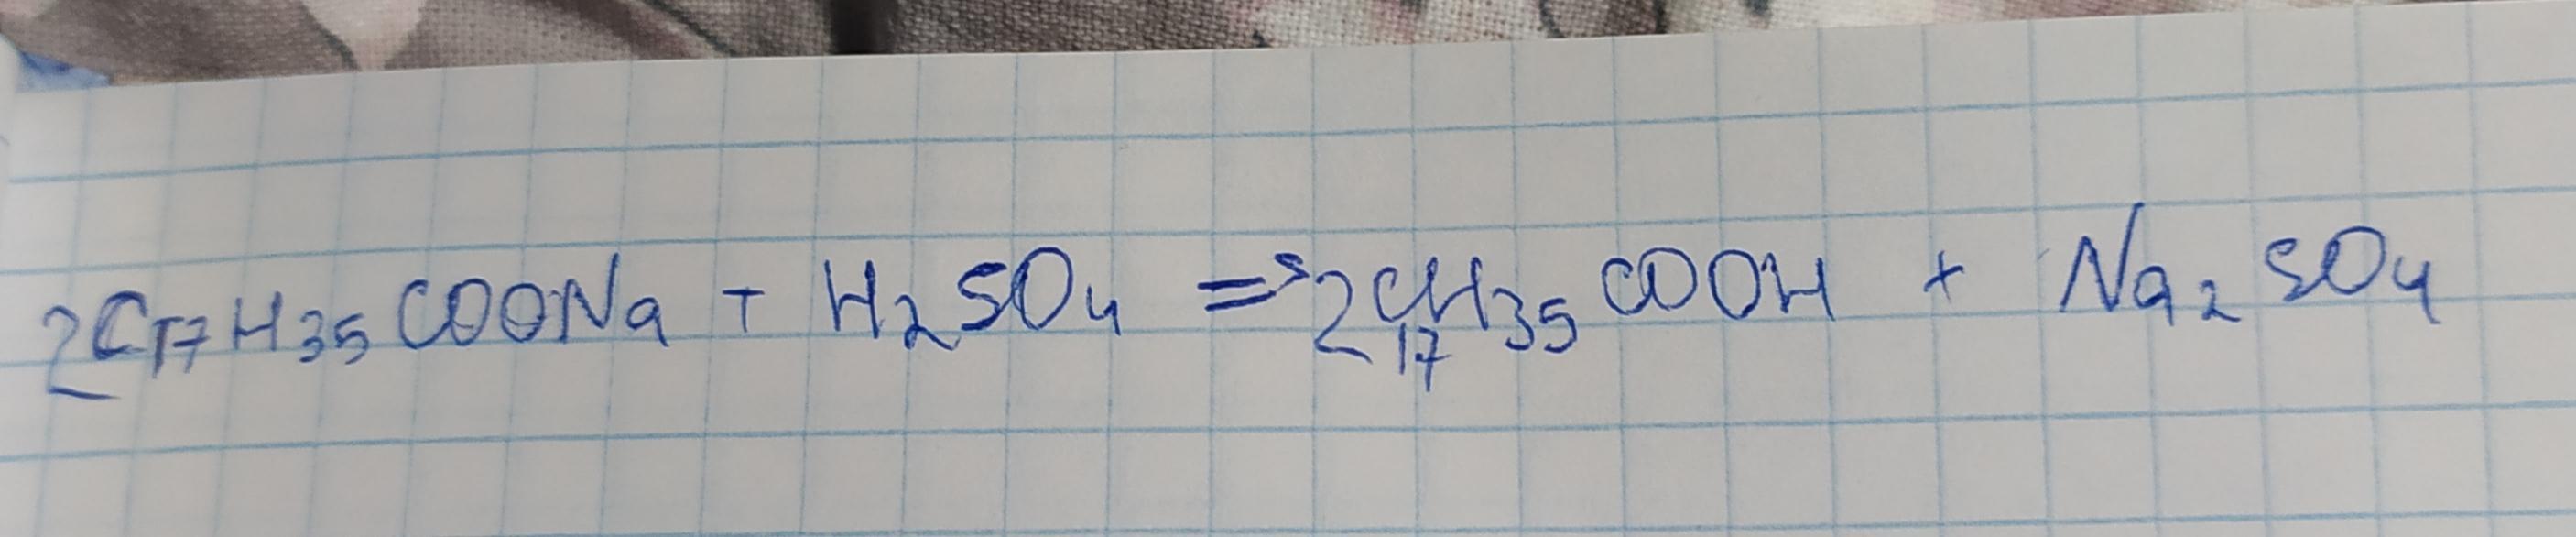 2C₁₇H₃₅COONa + H₂SO₄ => 2C₁₇H₃₅COOH + Na₂SO₄